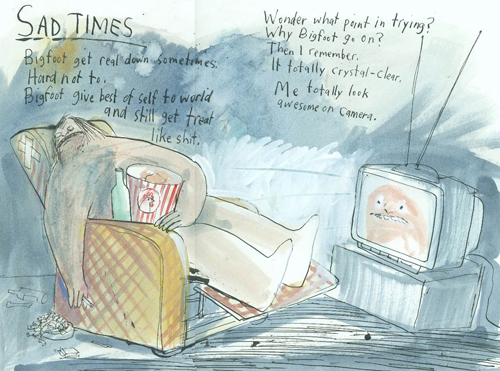 SAD TIMES
Bigfoot get real down sometimes.
Hard not to.
Bigfoot give best of self to world
and still get treat
like shit.
Wonder what point in trying?
Why Bigfoot go on?
Then I remember.
It totally crystal-clear.
Me totally look
awesome on camera.